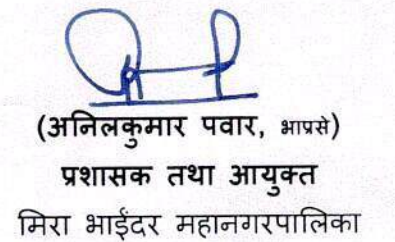 (अनिलकुमार पवार, भाप्रसे)
प्रशासक तथा आयुक्त
मिरा भाईंदर महानगरपालिका